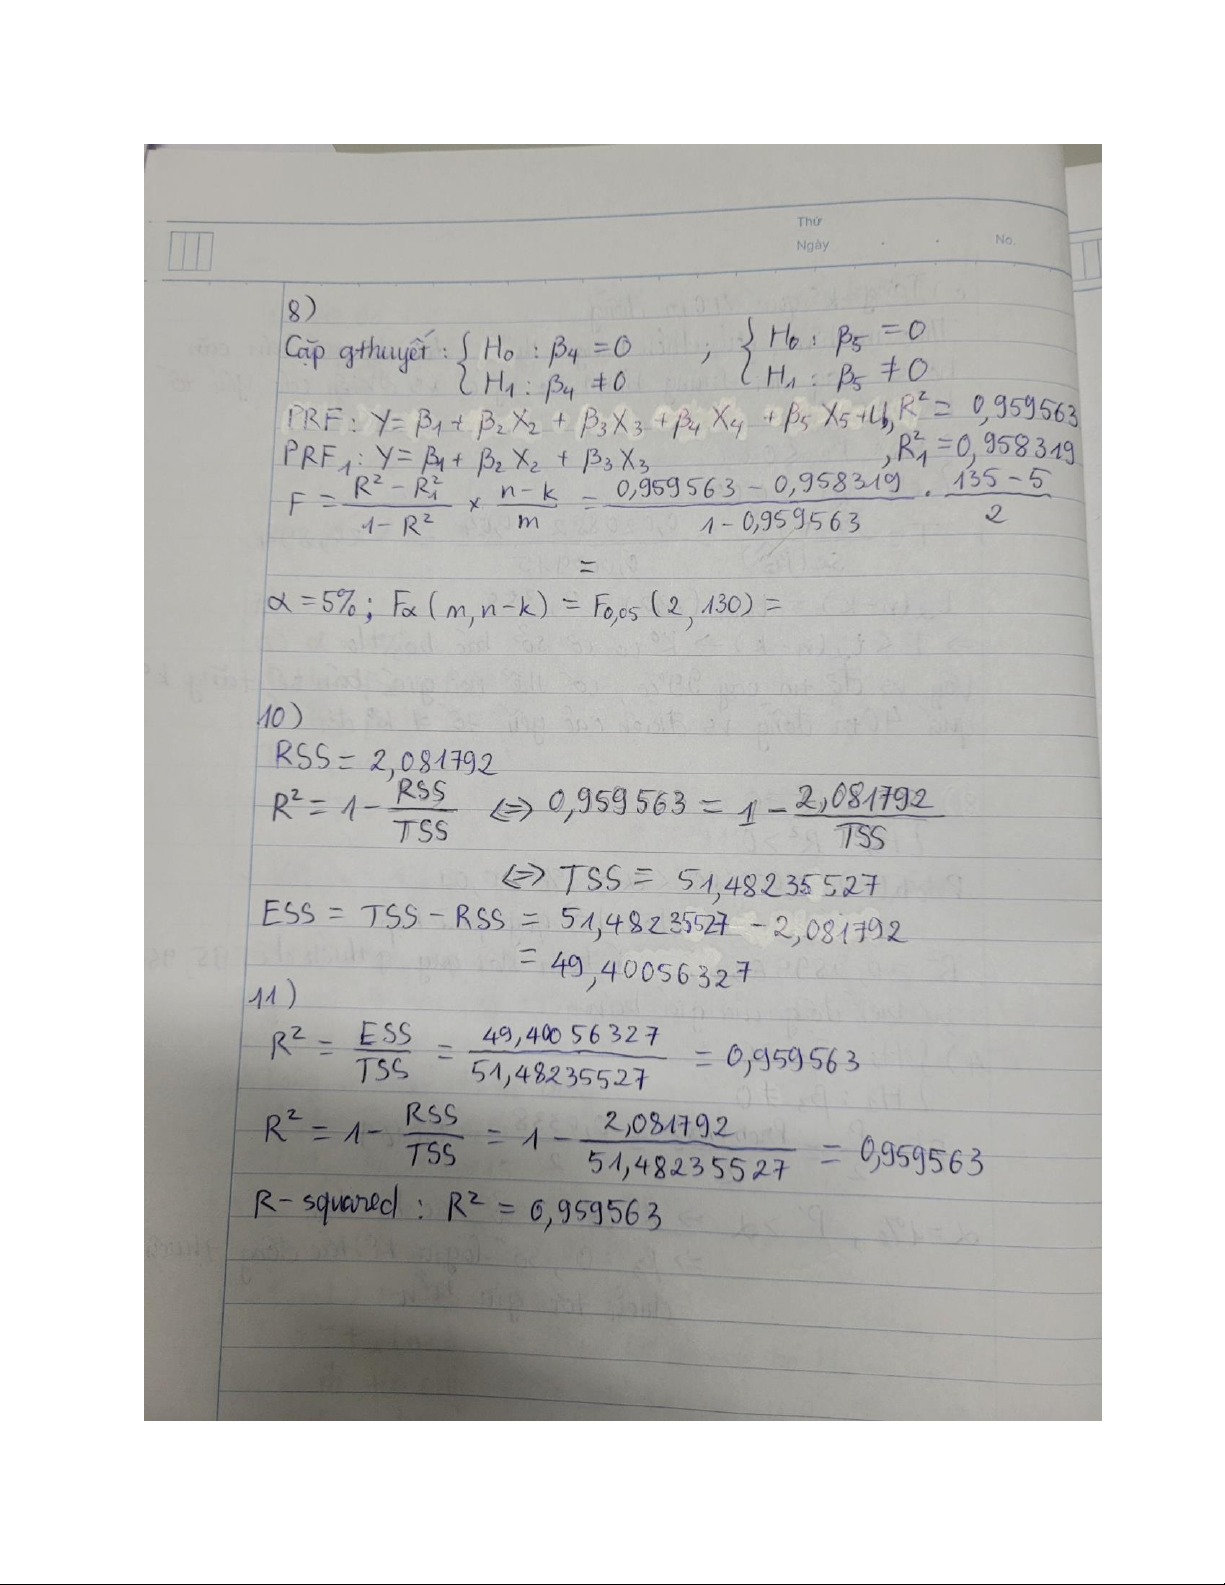 Thứ
Ngày . . No.
8)
Cặp gthuyết : { H₀ : β₄ = 0 , { H₀ : β₅ = 0
H₁ : β₄ ≠ 0 H₁ : β₅ ≠ 0
PRF : Y = β₁ + β₂X₂ + β₃X₃ + β₄X₄ + β₅X₅ + U, R² = 0,959563
PRF₁ : Y = β₁ + β₂X₂ + β₃X₃ , R₁² = 0,958319
F = (R² - R₁²)/(1 - R²) × (n - k)/m = (0,959563 - 0,958319)/(1 - 0,959563) . (135 - 5)/2
=
α = 5% ; Fα (m, n - k) = F₀,₀₅ (2, 130) =
10)
RSS = 2,081792
R² = 1 - RSS/TSS ⇔ 0,959563 = 1 - 2,081792/TSS
⇔ TSS = 51,48235527
ESS = TSS - RSS = 51,48235527 - 2,081792
= 49,40056327
11)
R² = ESS/TSS = 49,40056327/51,48235527 = 0,959563
R² = 1 - RSS/TSS = 1 - 2,081792/51,48235527 = 0,959563
R-squared : R² = 0,959563